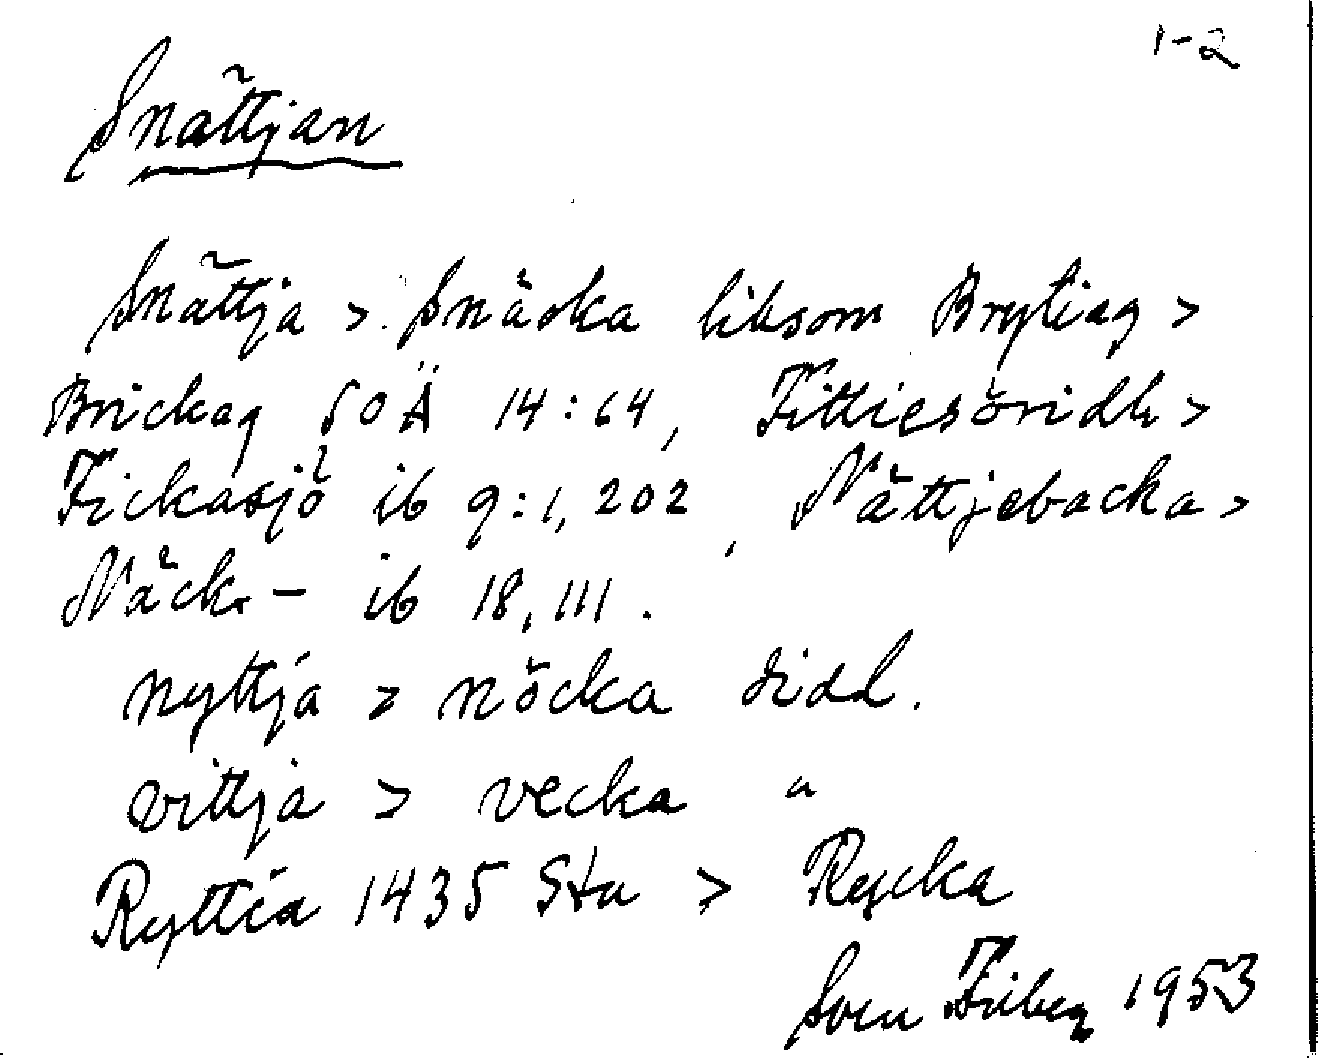 1-2
Snättjan
Snättja > Snäcka liksom Brytieg >
Brickag SOÄ 14:64, Fittiesöridh >
Fickasjö ib 9:1,202, Nättjebacka >
Näck- ib 18,111.
nyttja > nöcka diał.
vittja > vecka "
Ryttia 1435 Sta > Rycka
Sven Friberg 1953